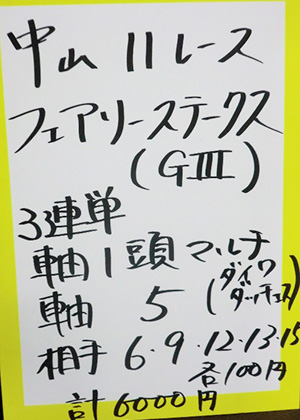 中山11レース
フェアリーステークス
(GIII)
3連単
軸1頭マルチ
軸 5 (ダイワダッチェス)
相手 6・9・12・13・15
各100円
計6000円